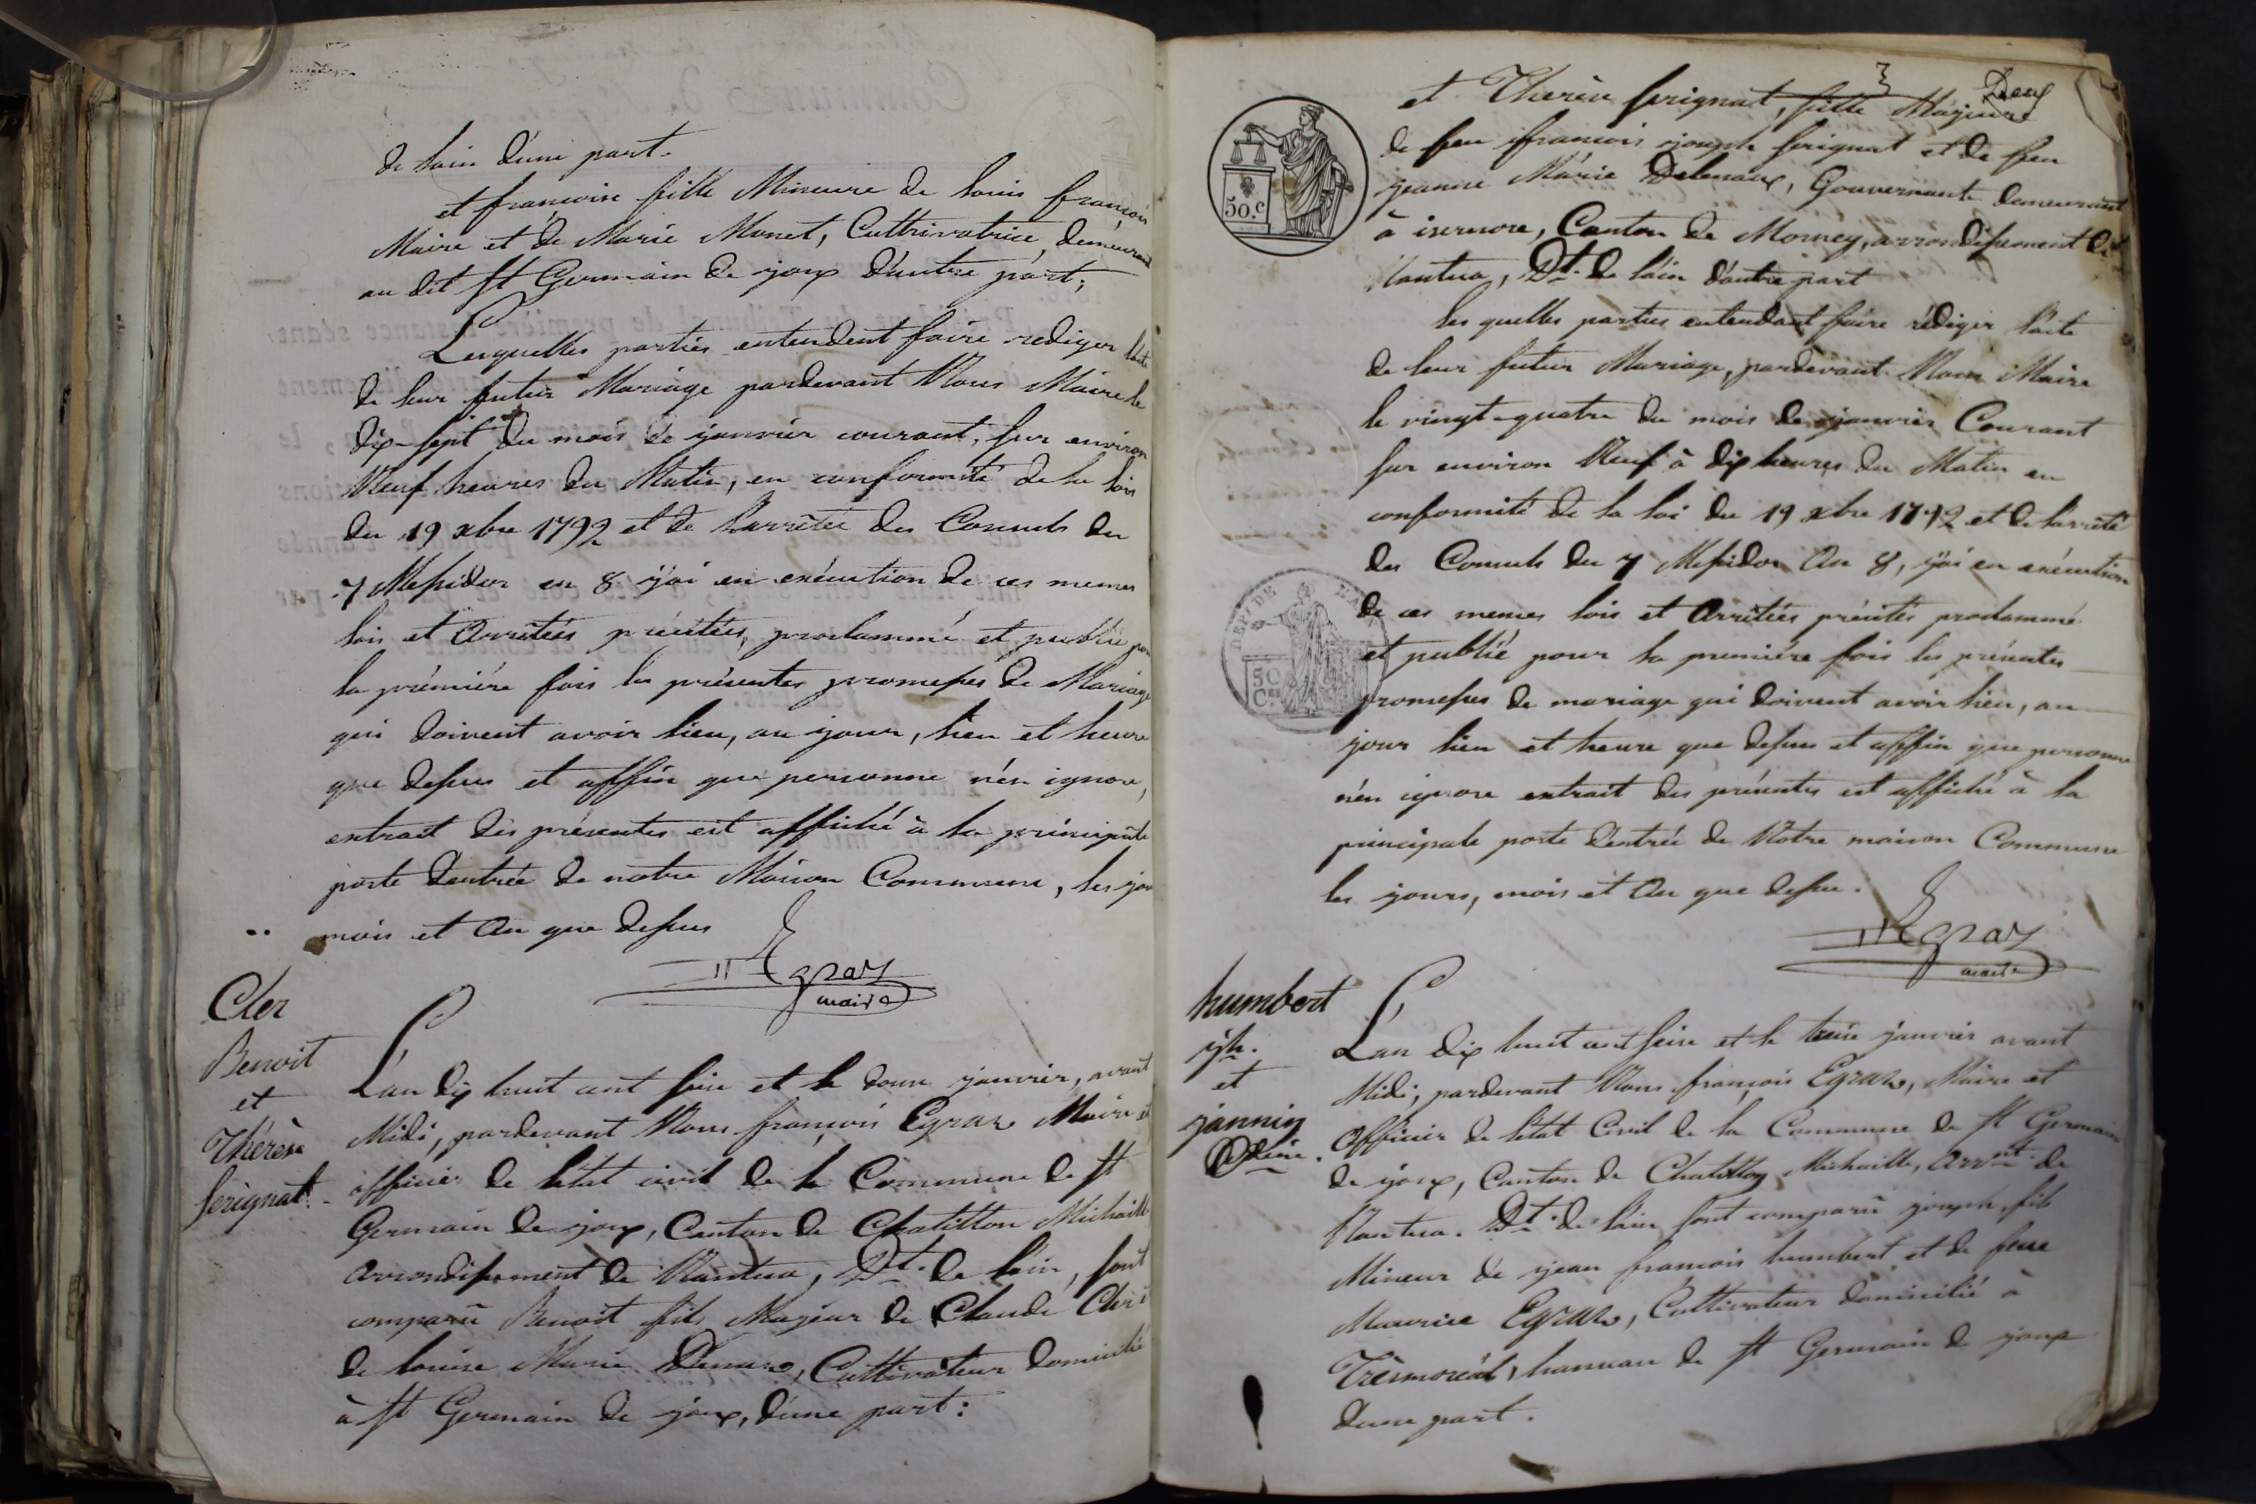 de Lain d'une part.
et francoise fille Mineure de Louis françois
Maire et de Marie Monet, Culttrivatrice demeurant
au dit St Germain de joux d'autre part;
Lesquelles parties entendent faire rediger lacte
de leur futur Mariage pardevant Nous Maire le
dix-sept du mois de janvier courant, sur environ
Neuf heures du Matin, en conformité de la loix
du 19 xbre 1792 et de Larrêtée des Consuls du
7 Messidor an 8 j'ai en exécution de ces memes
lois et Arrêtées précitées, proclammé et publié pour
la prémiére fois les présentes promesses de Mariage
qui doivent avoir lieu, au jour, lieu et heure
que dessus et affin que personne n'én ignore,
extrait des présentes est affiché à la principale
porte dentrée de notre Maison Commune, les jour
mois et An que dessus
Egraz
maire
Cler
Benoit
et
Thérèse
Serignat.
L'an dix huit cent seize et le douze janvier, avant
Midi, pardevant Nous françois Egraz Maire et
officier de létat civil de la Commune de St
Germain de joux, Canton de Chatillon Michaille
arrondissement de Nantua, Dt. de Lain, sont
comparû Benoit fils Majeur de Claude Cler
de Louise Marie, Cultivateur domicilié
à St Germain de joux, d'une part:
Deux
3
et Therèse Serignat, fille Majeure
de feu francois joseph Serignat et de feu
jeanne Marie Delenaux, Gouvernante demeurant
à isernore, Canton de Mornay, arrondissement de
Nantua, Dt. de Lain d'autre part
les quelles parties entendant faire rédiger l'acte
de leur futur Mariage, pardevant Nous Maire
le vingt-quatre du mois de janvier Courant
sur environ Neuf à dix heures du Matin en
conformité de la loi du 19 xbre 1792 et de larrêté
des Consuls du 7 Messidor An 8, j'ai en exécution
de ces memes lois et Arrêtées précités proclammé
et publié pour la premiére fois les présentes
promesses de mariage qui doivent avoir lieu, au
jour lieu et heure que dessus et affin que personne
n'en ignore extrait des présentes est affiché à la
principale porte d'entrée de Notre maison Commune
les jours, mois et An que dessu.
Egraz
maire
50.c
50
Ces
humbert
jh.
et
jannin
L'an dix huit cent seize et le treize janvier avant
Midi, pardevant Nous françois Egraz, Maire et
Officier de létat Civil de la Commune de St Germain
de joux, Canton de Chatillon Michaille, arrnt. de
Nantua. Dt. de Lain, sont comparû joseph, fils
Mineur de jean francois humbert et de feue
Maurise Egraz, Cultivateur domicilié à
Trèmoréal, hameau de St Germain de joux
d'une part.